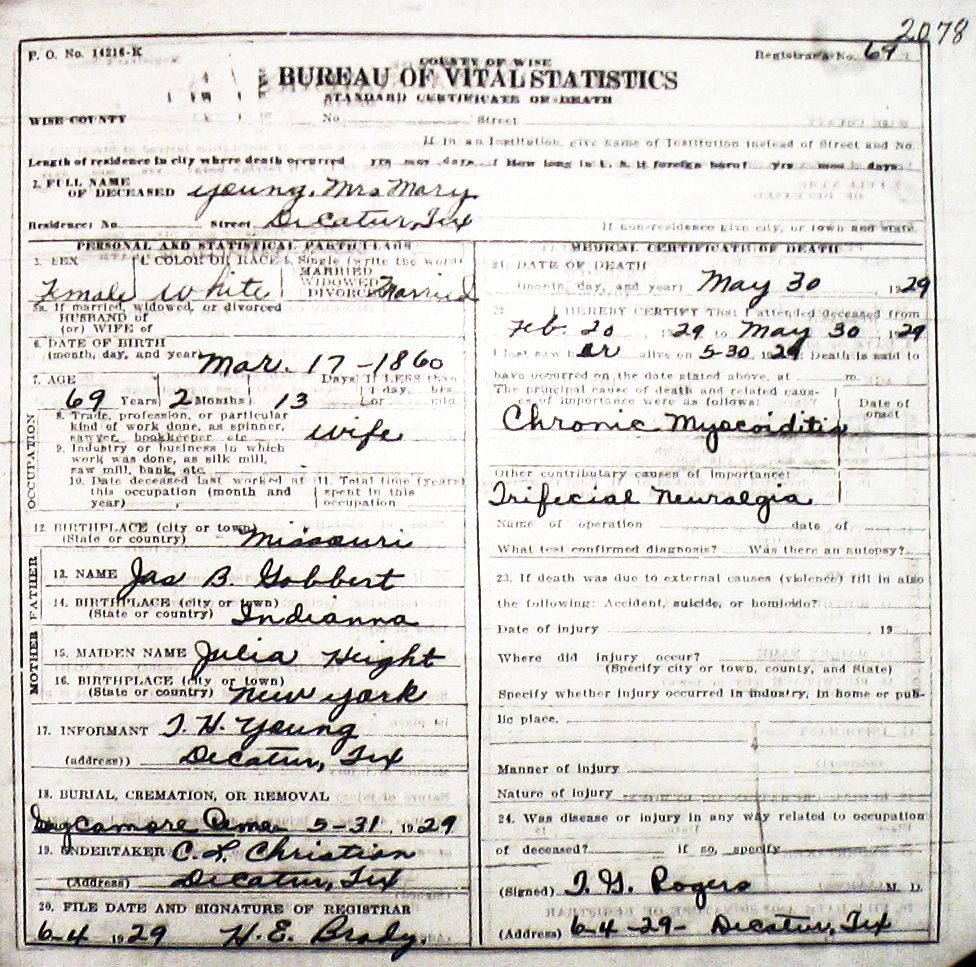 2078
P. O. No. 14216-K
COUNTY OF WISE
Registrar's No. 69
BUREAU OF VITAL STATISTICS
STANDARD CERTIFICATE OF DEATH
WISE COUNTY No Street
If in an Institution, give name of Institution instead of Street and No.
Length of residence in city where death occurred yrs mos days. How long in U. S. if foreign born? yrs mos days.
2. FULL NAME
OF DECEASED Young, Mrs Mary
Residence: No Street Decatur, Tex If non-residence give city, or town and state.
PERSONAL AND STATISTICAL PARTICULARS
3. SEX 4. COLOR OR RACE 5. Single (write the word)
MARRIED
WIDOWED
DIVORCED Married
Female White
5a. If married, widowed, or divorced
HUSBAND of
(or) WIFE of
6. DATE OF BIRTH
(month, day, and year) Mar. 17 - 1860
7. AGE Days If LESS than
1 day, hrs.
69 Years 2 Months 13 or min.
OCCUPATION
8. Trade, profession, or particular
kind of work done, as spinner,
sawyer, bookkeeper etc wife
9. Industry or business in which
work was done, as silk mill,
saw mill, bank, etc.
10. Date deceased last worked at
this occupation (month and
year)
11. Total time (years)
spent in this
occupation
12 BIRTHPLACE (city or town)
(State or country) Missouri
FATHER
13. NAME Jas B. Gobbert
14. BIRTHPLACE (city or town)
(State or country) Indianna
MOTHER
15. MAIDEN NAME Julia Height
16. BIRTHPLACE (city or town)
(State or country) New York
17. INFORMANT T. H. Young
(address)) Decatur, Tex
18. BURIAL, CREMATION, OR REMOVAL
Sycamore Cem. 5-31, 1929
19. UNDERTAKER C. L. Christian
(Address) Decatur, Tex
20. FILE DATE AND SIGNATURE OF REGISTRAR
6-4 1929 H. E. Brady.
MEDICAL CERTIFICATE OF DEATH
21. DATE OF DEATH
(month, day, and year) May 30, 1929
22. I HEREBY CERTIFY That I attended deceased from
Feb. 20, 1929 to May 30, 1929
I last saw her alive on 5-30, 1929 Death is said to
have occurred on the date stated above, at m.
The principal cause of death and related causes
of importance were as follows:
Date of
onset
Chronic Myocoiditis
Other contributary causes of importance:
Trifecial Neuralgia
Name of operation date of
What test confirmed diagnosis? Was there an autopsy?
23. If death was due to external causes (violence) fill in also
the following: Accident, suicide, or homicide?
Date of injury 19
Where did injury occur?
(Specify city or town, county, and State)
Specify whether injury occurred in industry, in home or pub-
lic place.
Manner of injury
Nature of injury
24. Was disease or injury in any way related to occupation
of deceased? if so, specify
(Signed) T. G. Rogers M. D.
(Address) 6-4-29- Decatur, Tex